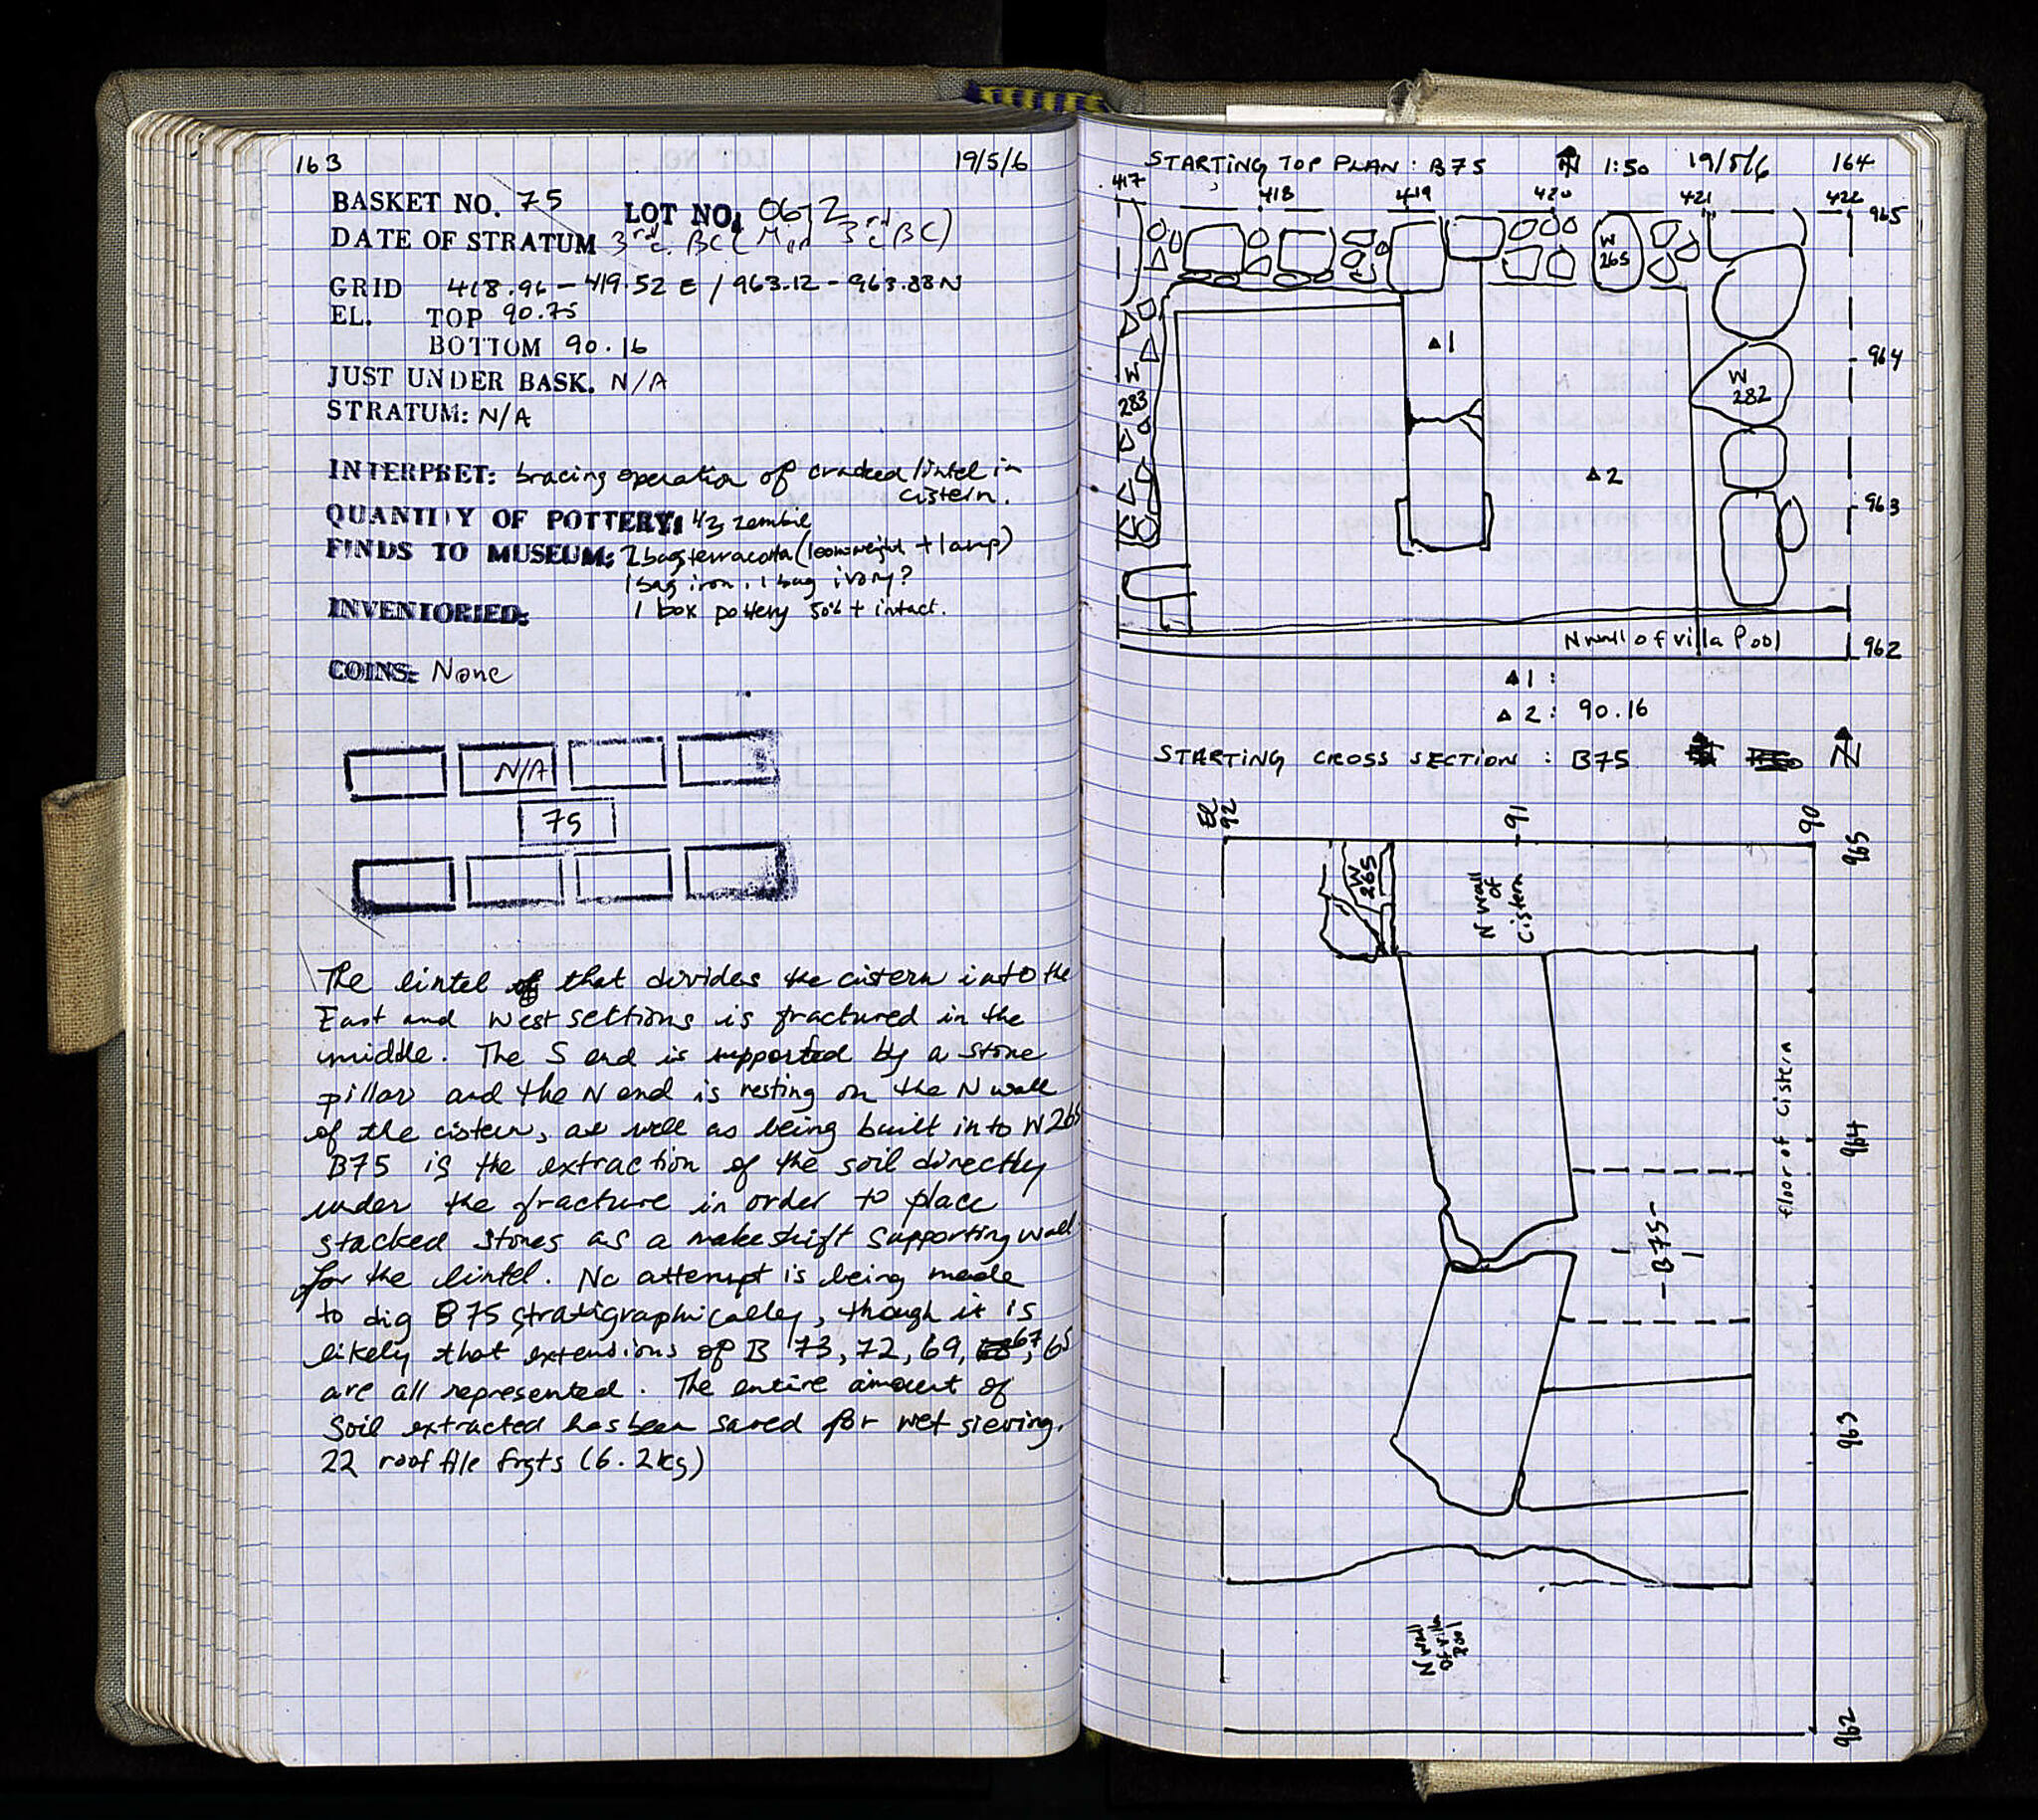 163 19/5/6
BASKET NO. 75 LOT NO. 06-2
DATE OF STRATUM 3rd c. BC ( 3rd c BC)
GRID 418.96 - 419.52 E / 963.12 - 963.88 N
EL. TOP 90.75
BOTTOM 90.16
JUST UNDER BASK. N/A
STRATUM: N/A
INTERPRET: bracing operation of cracked lintel in
cistern.
QUANTITY OF POTTERY: 1/3 zembil
FINDS TO MUSEUM: 2 bags terracotta (loomweight + lamp)
1 bag iron, 1 bag ivory?
INVENTORIED: 1 box pottery 50% + intact.
COINS: None
N/A
75
The lintel that divides the cistern into the
East and West sections is fractured in the
middle. The S end is supported by a stone
pillar and the N end is resting on the N wall
of the cistern, as well as being built into W265
B75 is the extraction of the soil directly
under the fracture in order to place
stacked stones as a makeshift supporting wall
for the lintel. No attempt is being made
to dig B75 stratigraphically, though it is
likely that extensions of B 73, 72, 69, 67, 65
are all represented. The entire amount of
Soil extracted has been saved for wet sieving.
22 roof tile frgts (6.2kg)
STARTING TOP PLAN: B75 N 1:50 19/5/6 164
417 418 419 420 421 422
965
W
265
▵1
964
W
283
W
282
▵2
963
N wall of villa Pool
962
▵1:
▵2: 90.16
STARTING CROSS SECTION: B75 N
EL
92 91 90
965
W
265
N wall
of
Cistern
floor of cistern
964
B75
963
N wall
of villa
Pool
962